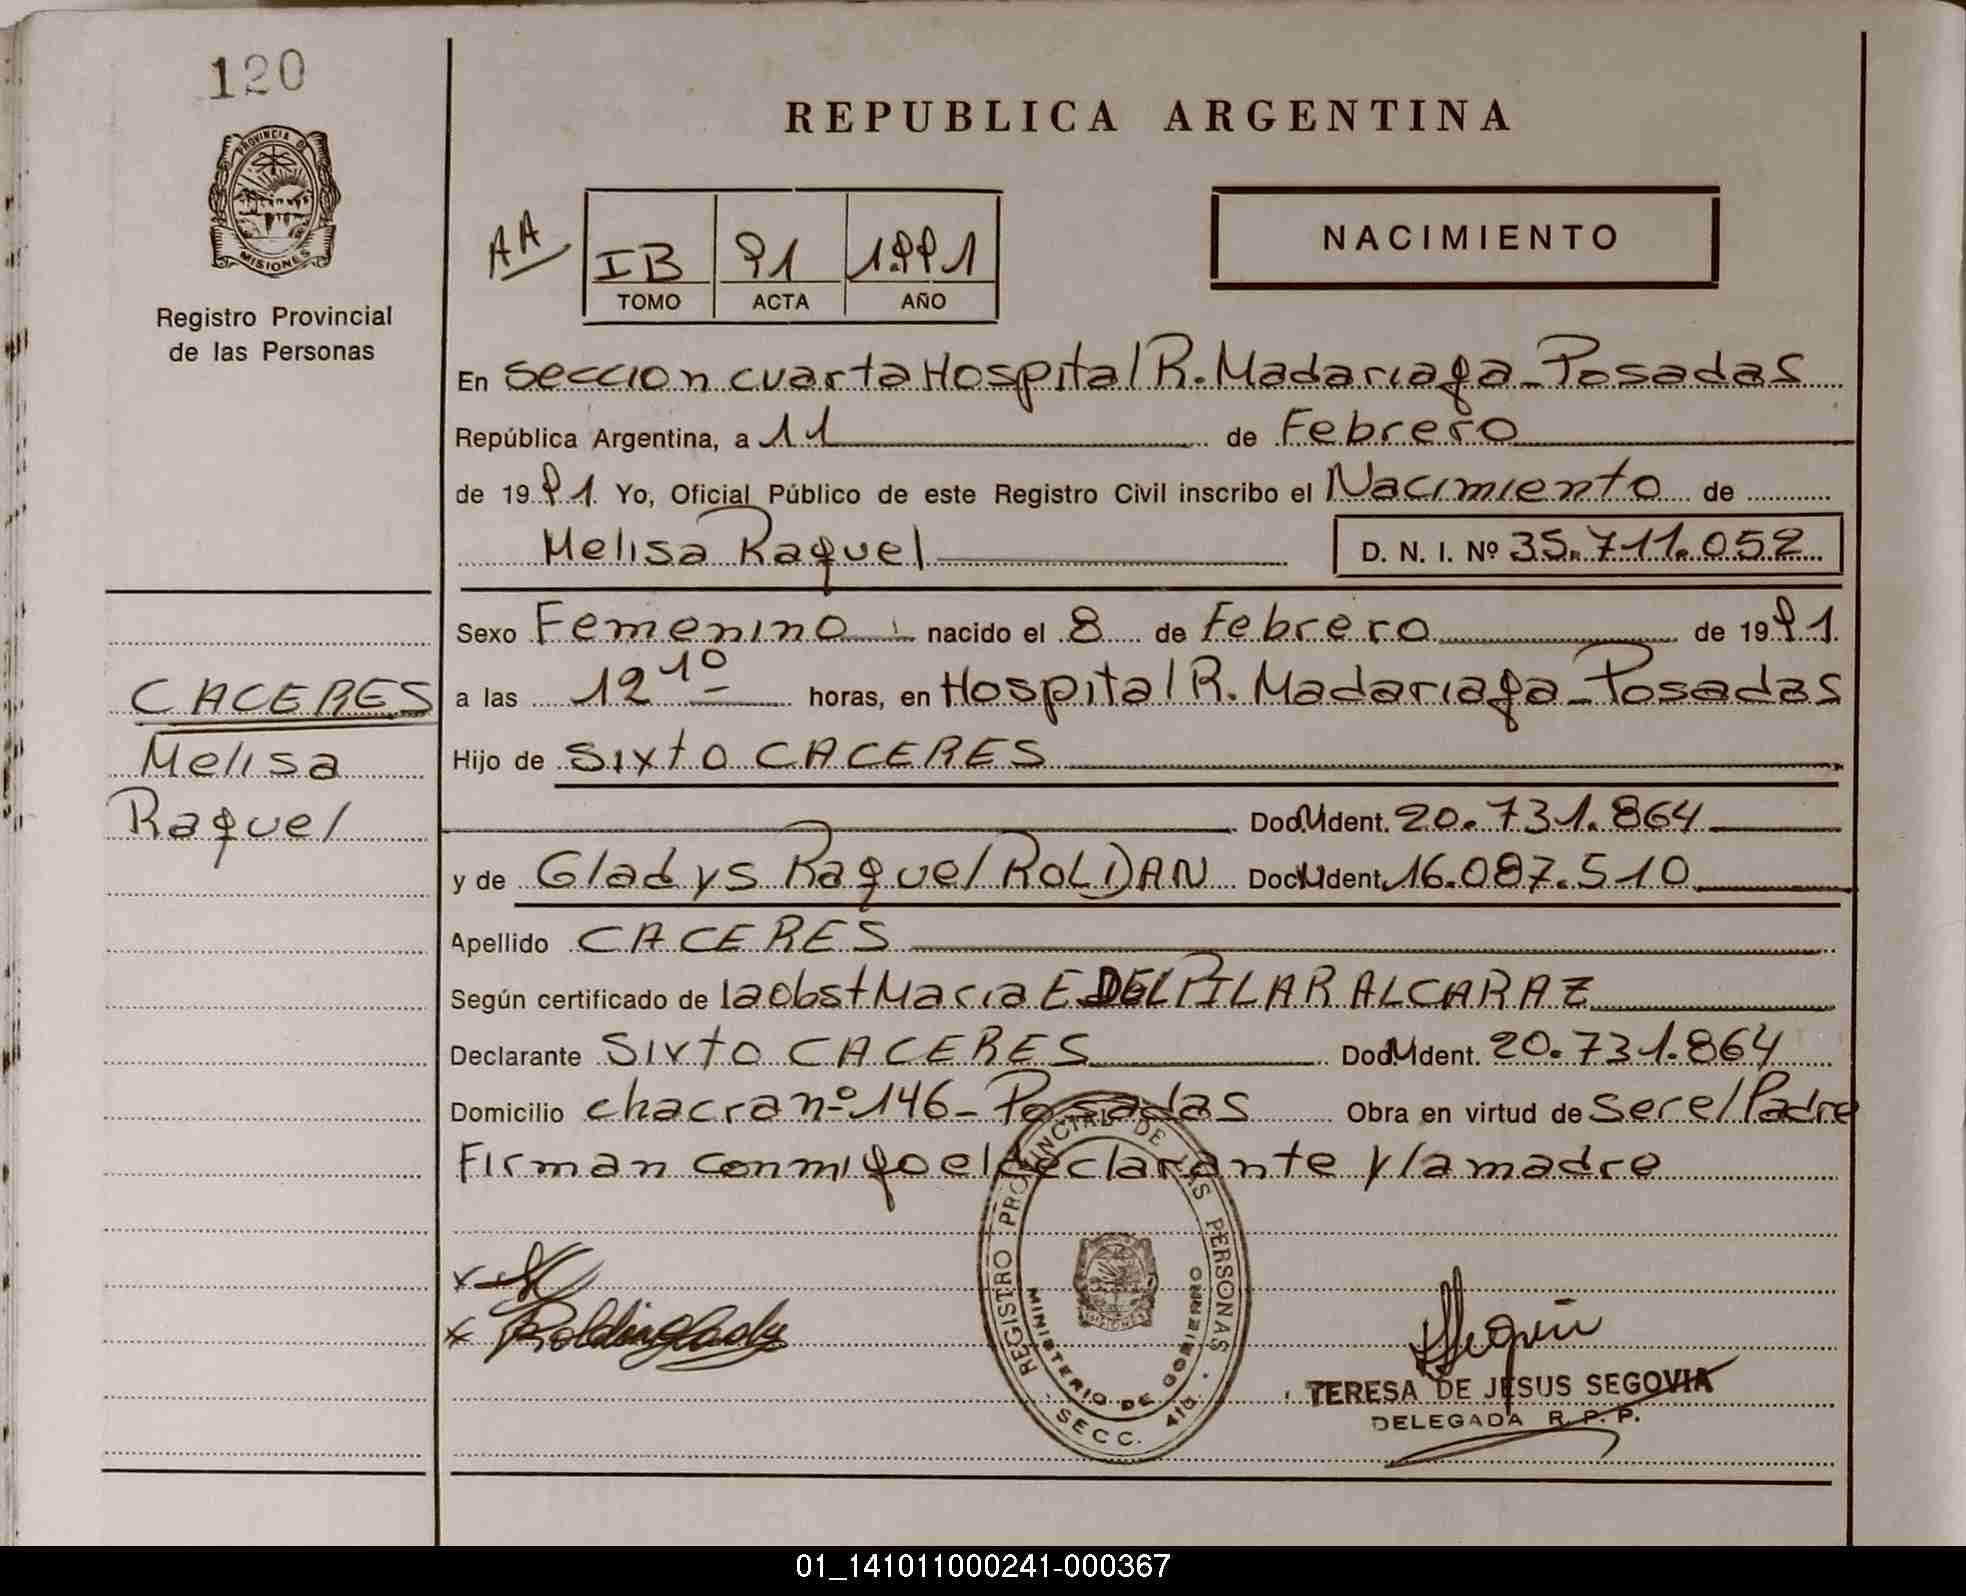 120
REPUBLICA ARGENTINA
PROVINCIA DE
MISIONES
Registro Provincial
de las Personas
AA
IB 91 1.991
TOMO ACTA AÑO
NACIMIENTO
En seccion cuarta Hospital R. Madariaga - Posadas
República Argentina, a 11 de Febrero
de 1991. Yo, Oficial Público de este Registro Civil inscribo el Nacimiento de
Melisa Raquel D. N. I. Nº 35.711.052
Sexo Femenino nacido el 8 de Febrero de 1991.
CACERES
Melisa
Raquel
a las 12 10 horas, en Hospital R. Madariaga - Posadas
Hijo de Sixto CACERES
Doc. Ident. 20.731.864
y de Gladys Raquel ROLDAN Doc. Ident. 16.087.510
Apellido CACERES
Según certificado de la obst Maria E. DEL PILAR ALCARAZ
Declarante Sixto CACERES Doc. Ident. 20.731.864
Domicilio chacra nº 146 - Posadas Obra en virtud de ser el Padre
Firman conmigo el declarante y la madre
REGISTRO PROVINCIAL DE LAS PERSONAS
MINISTERIO DE GOBIERNO
SECC. 4ta.
MISIONES
x
x Roldan Gladys
TERESA DE JESUS SEGOVIA
DELEGADA R. P. P.
01_141011000241-000367